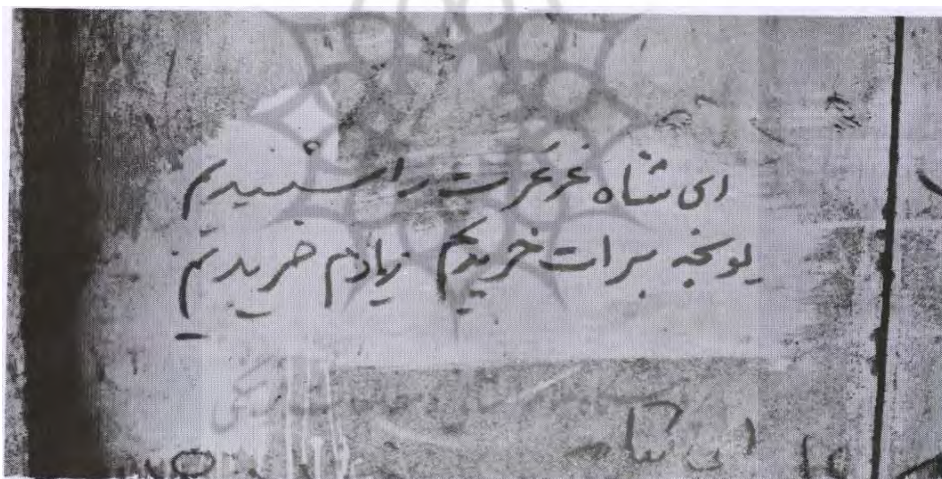 ای شاه عَرعَرت را شنیدیم
یونجه برات خریدیم زیادم خریدیم
ای شاه